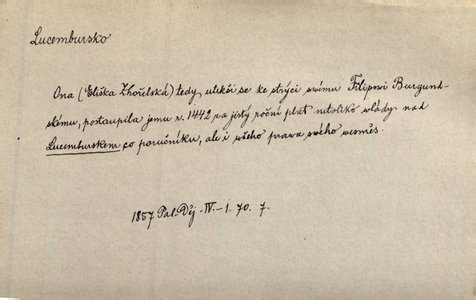 Lucembursko
Ona (Eliška Zhořelská) tedy utekši se ke strýci svému Filipovi Burgund-
skému, postoupila jemu r. 1442 za jistý roční plat netoliko vlády nad
Lucemburskem co poručníku, ale i všeho prawa svého wesměs.
1857 Pal. Děj. IV-1. 70. 7.